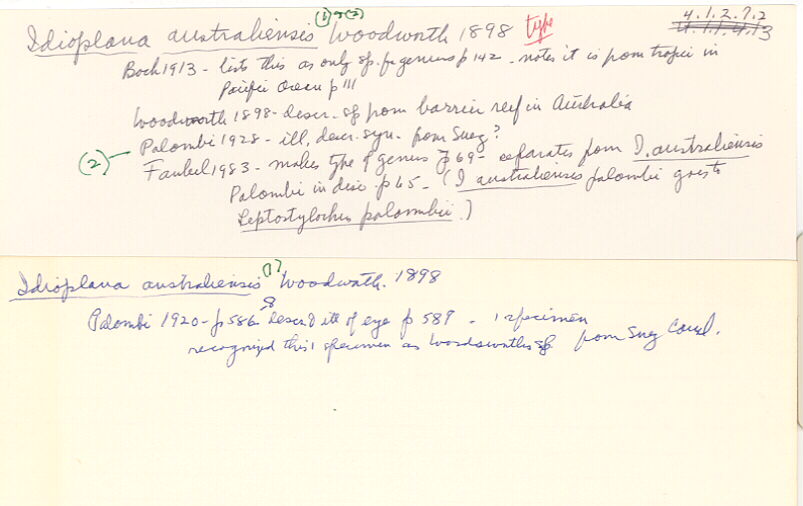 (1) & (2)
Idioplana australiensis Woodworth 1898 type
4.1.2.7.2
4.1.1.4.13
Bock 1913 - lists this as only sp. for genus p 142 - notes it is from tropics in
Pacific Ocean p 111
Woodworth 1898 - descr. sp from barrier reef in Australia
(2) - Palombi 1928 - ill, descr. syn. from Suez?
Faubel 1983 - makes type of genus p 69 - separates from I. australiensis
Palombi in disc. p 65 - (I australiensis palombi goes to
Leptostylochus palombii.)
(1)
Idioplana australiensis Woodworth. 1898
Palombi 1920 - p 586 descr & ill of eye p 589 - 1 specimen
8
recognized this 1 specimen as Woodworths sp from Suez Canal.